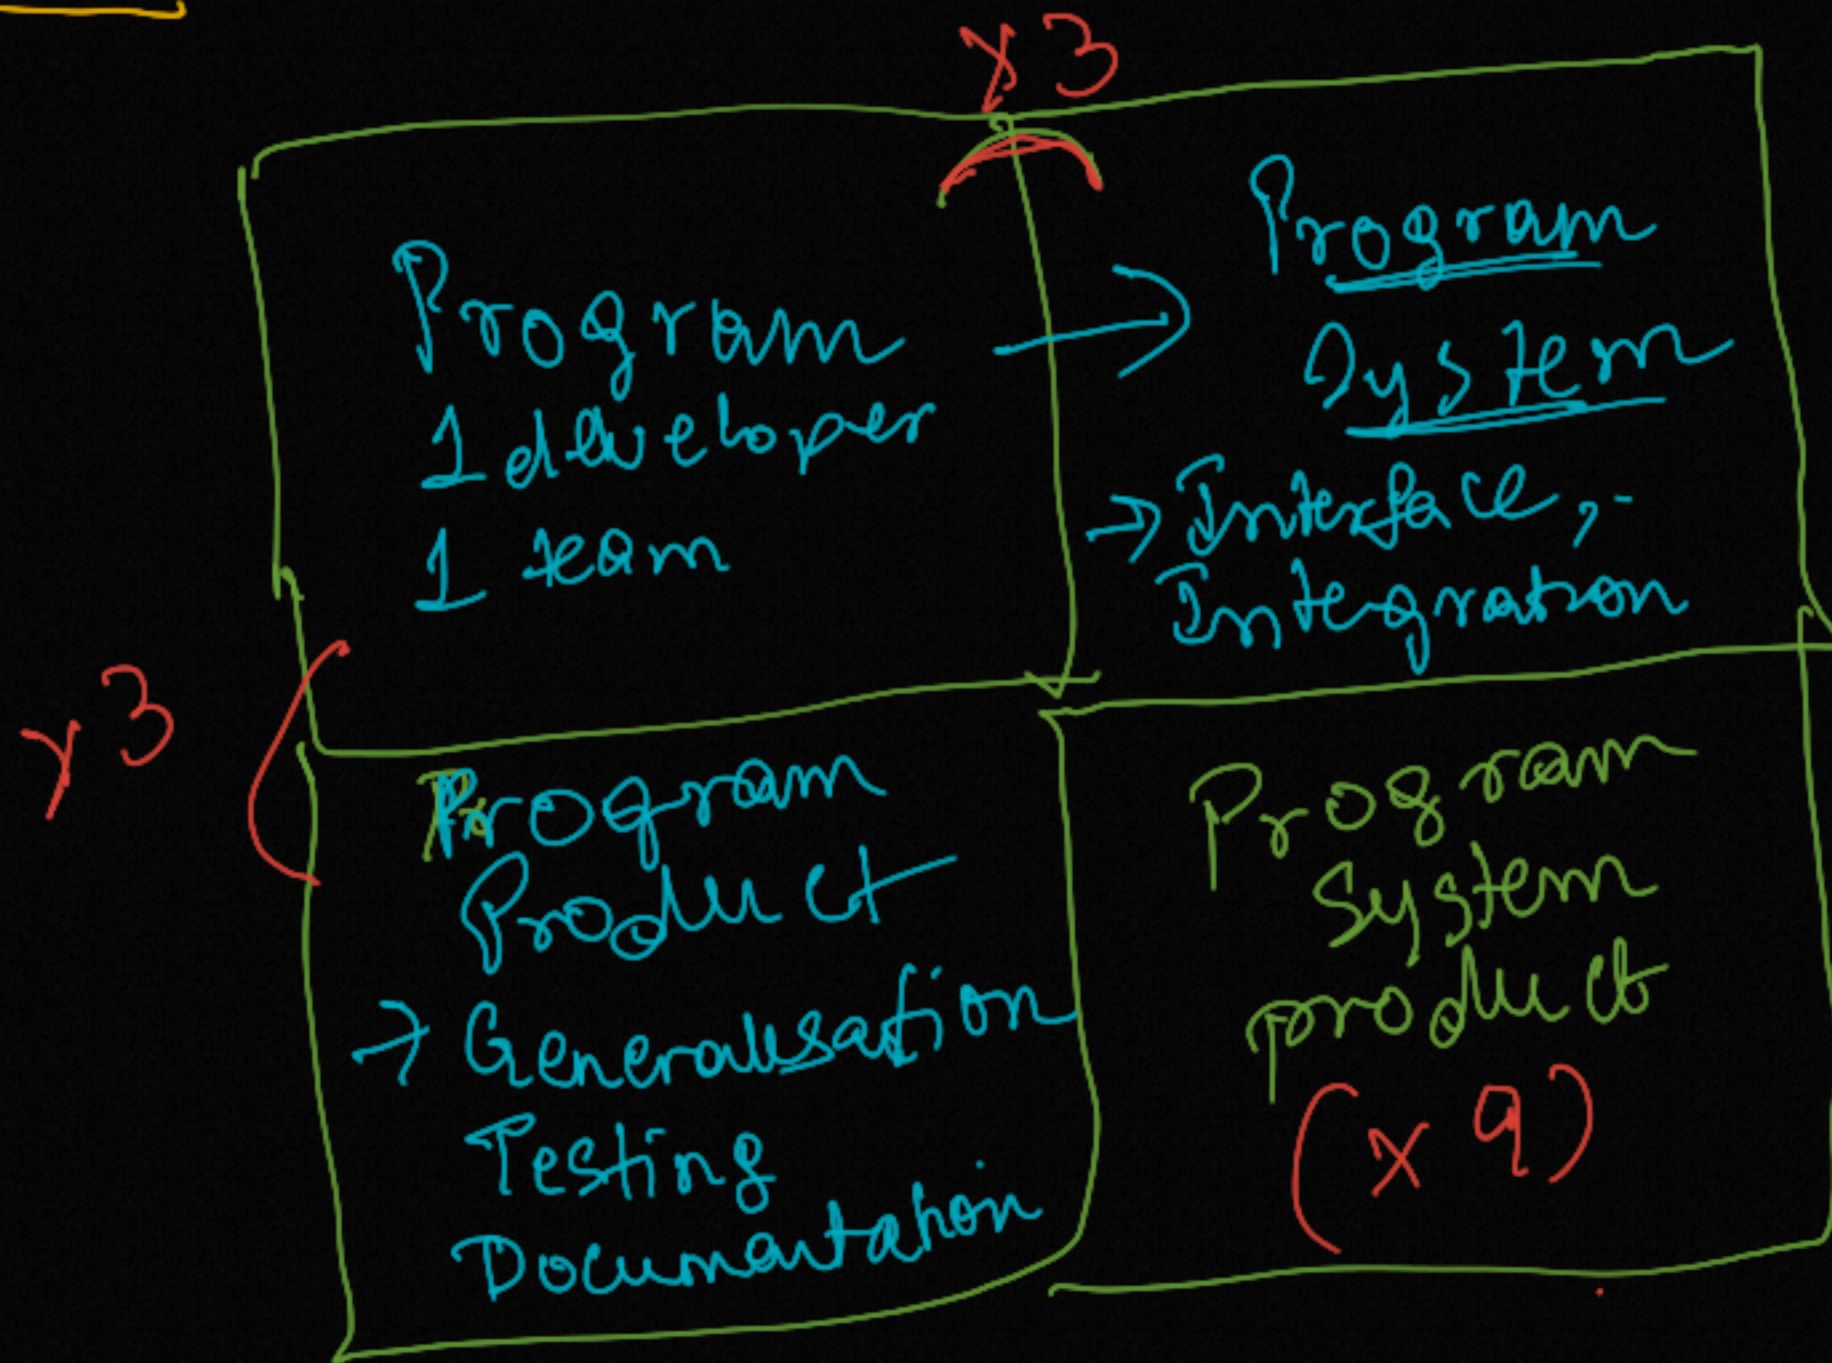 x3
Program
1 developer
1 team
Program
System
→ Interface,
Integration
x3
Program
Product
→ Generalisation
Testing
Documentation
Program
System
product
(x 9)